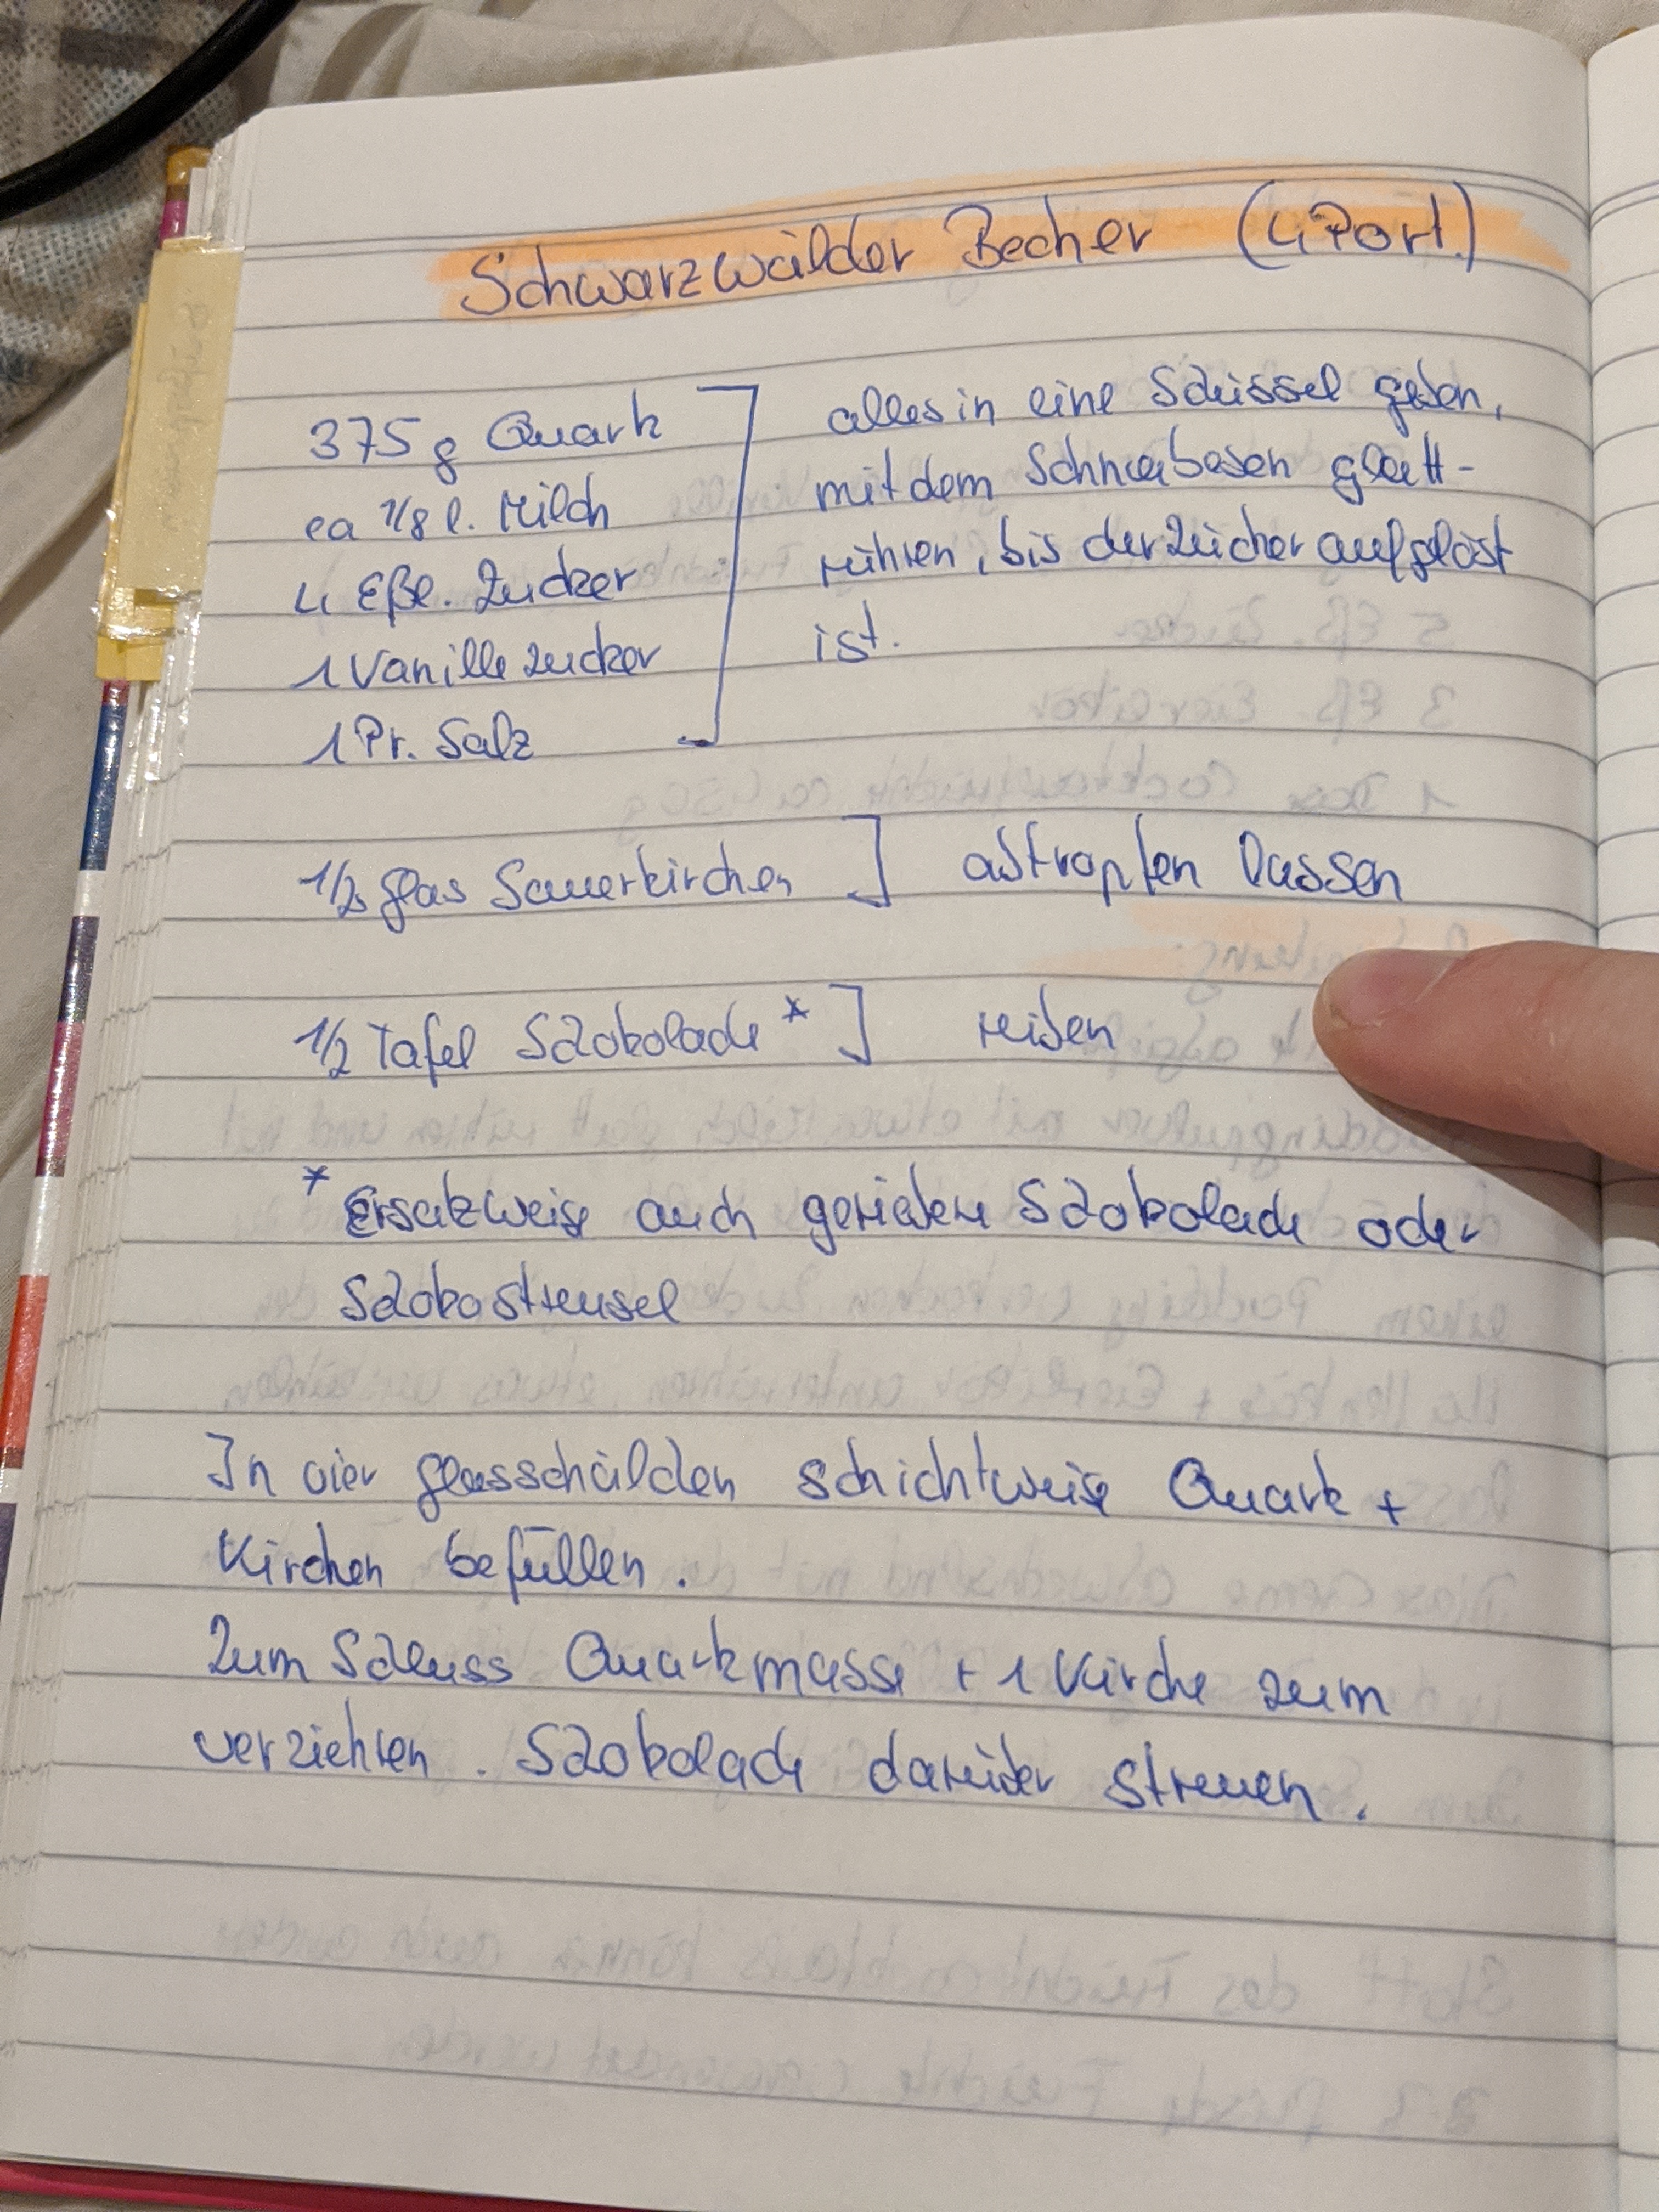 Schwarzwälder Becher (4 Port.)
375 g Quark
ca 1/8 l. Milch
4 Eßl. Zucker
1 Vanillezucker
1 Pr. Salz
alles in eine Schüssel geben,
mit dem Schneebesen glatt-
rühren, bis der Zucker aufgelöst
ist.
1/2 Glas Sauerkirchen ] abtropfen lassen
1/2 Tafel Schokolade * ] reiben
* Ersatzweise auch geriebene Schokolade oder
Schokostreusel
In vier Glasschälchen schichtweise Quark +
Kirchen befüllen.
Zum Schluss Quarkmasse + 1 Kirche zum
verziehren. Schokolade darüber streuen.